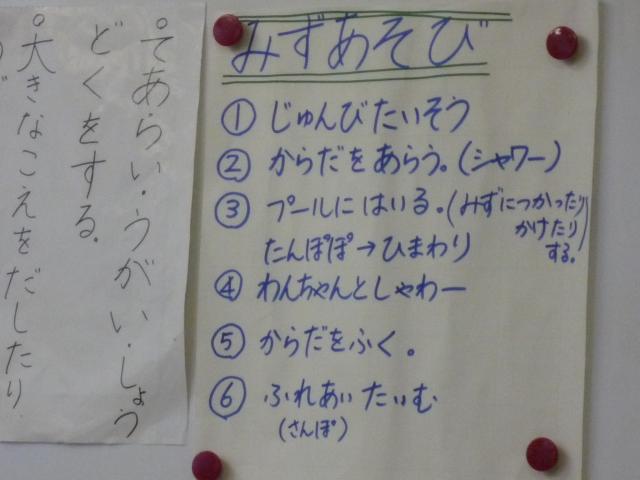 みずあそび
① じゅんびたいそう
② からだをあらう。(シャワー)
③ プールにはいる。(みずにつかったり
かけたり
する。)
たんぽぽ→ひまわり
④ わんちゃんとしゃわー
⑤ からだをふく。
⑥ ふれあいたいむ
(さんぽ)
てあらい・うがい・しょう
どくをする。
大きなこえをだしたり